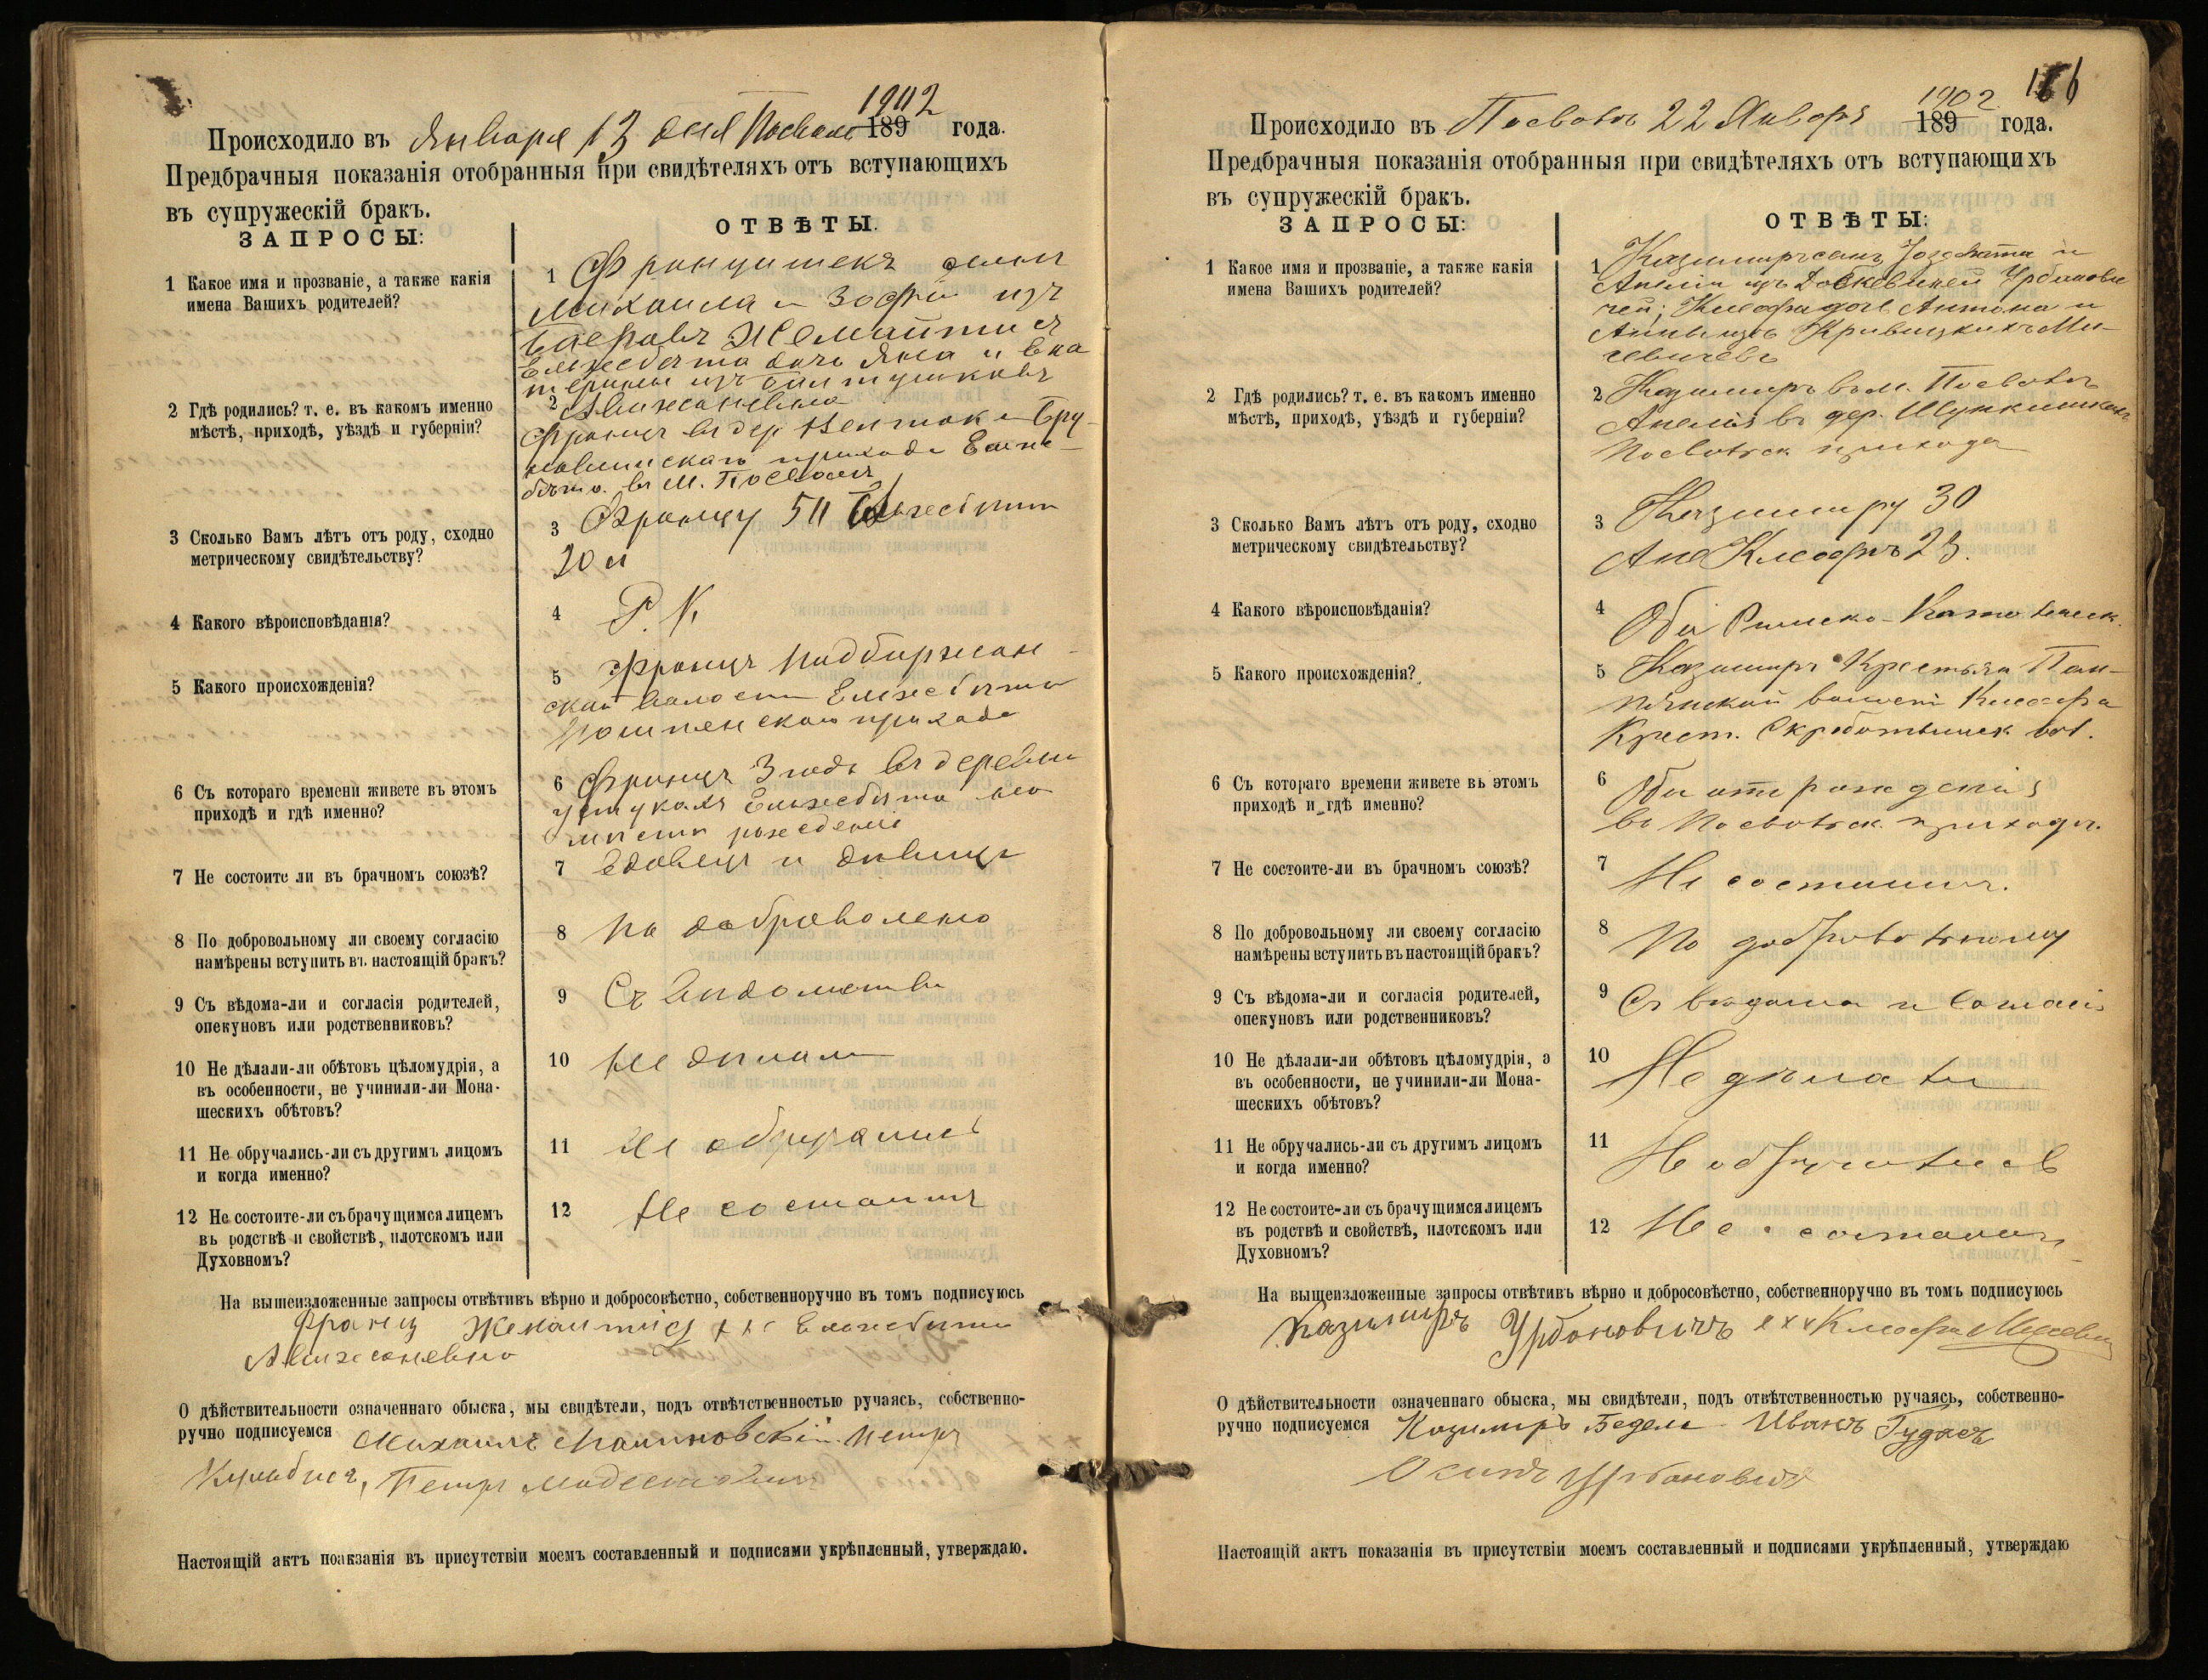 1902
Происходило въ Января 13 дня Посволь 189 года.
Предбрачныя показанія отобранныя при свидѣтеляхъ отъ вступающихъ
въ супружескій бракъ.
ЗАПРОСЫ:
ОТВѢТЫ.
1 Какое имя и прозваніе, а также какія
имена Вашихъ родителей?
1 Францишекъ
Михаила и Зофіи изъ
Жемайтис
Елжебѣта дочь Яна и Ека
терины изъ
2 Гдѣ родились? т. е. въ какомъ именно
мѣстѣ, приходѣ, уѣздѣ и губерніи?
2
Францъ въ дер
прихода Елже-
бѣта въ м. Посволь
3 Сколько Вамъ лѣтъ отъ роду, сходно
метрическому свидѣтельству?
3 Францу Елжебѣти
20 л
4 Какого вѣроисповѣданія?
4 Р. К
5 Какого происхожденія?
5 Францъ Надбиржан-
ской волости Елжебѣта
прихода
6 Съ котораго времени живете въ этомъ
приходѣ и гдѣ именно?
6 Францъ 3 года въ деревни
Елжебѣта
рождені
7 Не состоите ли въ брачномъ союзѣ?
7 вдовецъ и дѣвица
8 По добровольному ли своему согласію
намѣрены вступить въ настоящій бракъ?
8 По доброволено
9 Съ вѣдома-ли и согласія родителей,
опекуновъ или родственниковъ?
9 Съ
10 Не дѣлали-ли обѣтовъ цѣломудрія, а
въ особенности, не учинили-ли Мона-
шескихъ обѣтовъ?
10 Не дѣлали
11 Не обручались-ли съ другимъ лицомъ
и когда именно?
11 Не обручались
12 Не состоите-ли съ брачущимся лицемъ
въ родствѣ и свойствѣ, плотскомъ или
Духовномъ?
12 Не состоимъ
На вышеизложенные запросы отвѣтивъ вѣрно и добросовѣстно, собственноручно въ томъ подписуюсь
Францъ Жемайтис Елжебѣта
О дѣйствительности означеннаго обыска, мы свидѣтели, подъ отвѣтственностью ручаясь, собственно-
ручно подписуемся Михаилъ Малиновскій Петръ
Петръ
Настоящій актъ поакзанія въ присутствіи моемъ составленный и подписями укрѣпленный, утверждаю.
166
1902
Происходило въ Посволь 22 Январь 189 года.
Предбрачныя показанія отобранныя при свидѣтеляхъ отъ вступающихъ
въ супружескій бракъ.
ЗАПРОСЫ:
ОТВѢТЫ:
1 Какое имя и прозваніе, а также какія
имена Вашихъ родителей?
1 Казимиръ сынъ Іозефата и
Анеліи изъ Урбанови
чей; Клеофа дочь Антона и
Анны изъ Кривицкихъ Ми-
2 Гдѣ родились? т. е. въ какомъ именно
мѣстѣ, приходѣ, уѣздѣ и губерніи?
2 Казимиръ въ м. Посволь
Анелія въ дер.
Посвольск прихода
3 Сколько Вамъ лѣтъ отъ роду, сходно
метрическому свидѣтельству?
3 Казимиру 30
Ане Клеофѣ 23.
4 Какого вѣроисповѣданія?
4 Оби Римско-Католическ.
5 Какого происхожденія?
5 Казимиръ Крестьян
волости Клеофа
Крест. вол.
6 Съ котораго времени живете въ этомъ
приходѣ и гдѣ именно?
6 Оби отъ рожденія
въ Посвольск. приходѣ.
7 Не состоите-ли въ брачномъ союзѣ?
7 Не состоимъ.
8 По добровольному ли своему согласію
намѣрены вступить въ настоящій бракъ?
8 По добровольному
9 Съ вѣдома-ли и согласія родителей,
опекуновъ или родственниковъ?
9 Съ вѣдома и согласія
10 Не дѣлали-ли обѣтовъ цѣломудрія, а
въ особенности, не учинили-ли Мона-
шескихъ обѣтовъ?
10 Не дѣлали
11 Не обручались-ли съ другимъ лицомъ
и когда именно?
11 Не обручались
12 Не состоите-ли съ брачущимся лицемъ
въ родствѣ и свойствѣ, плотскомъ или
Духовномъ?
12 Не состоимъ
На вышеизложенные запросы отвѣтивъ вѣрно и добросовѣстно, собственноручно въ томъ подписуюсь
Казимиръ Урбоновичъ ххх Клеофа
О дѣйствительности означеннаго обыска, мы свидѣтели, подъ отвѣтственностью ручаясь, собственно-
ручно подписуемся Казимиръ Бедели Иванъ Гудасъ
Осипъ Урбоновичъ
Настоящій актъ показанія въ присутствіи моемъ составленный и подписями укрѣпленный, утверждаю